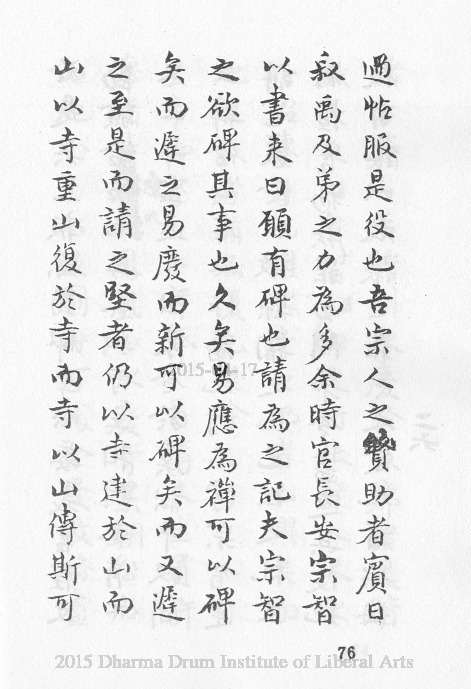 過帖服是役也吾宗人之贊助者賓日
叔禹及弟之力為多余時官長安宗智
以書来曰願有碑也請為之記夫宗智
之欲碑其事也久矣易應為禪可以碑
矣而遲之易廢而新可以碑矣而又遲
之至是而請之堅者仍以寺建於山而
山以寺重山復於寺而寺以山傳斯可
76
2015 Dharma Drum Institute of Liberal Arts